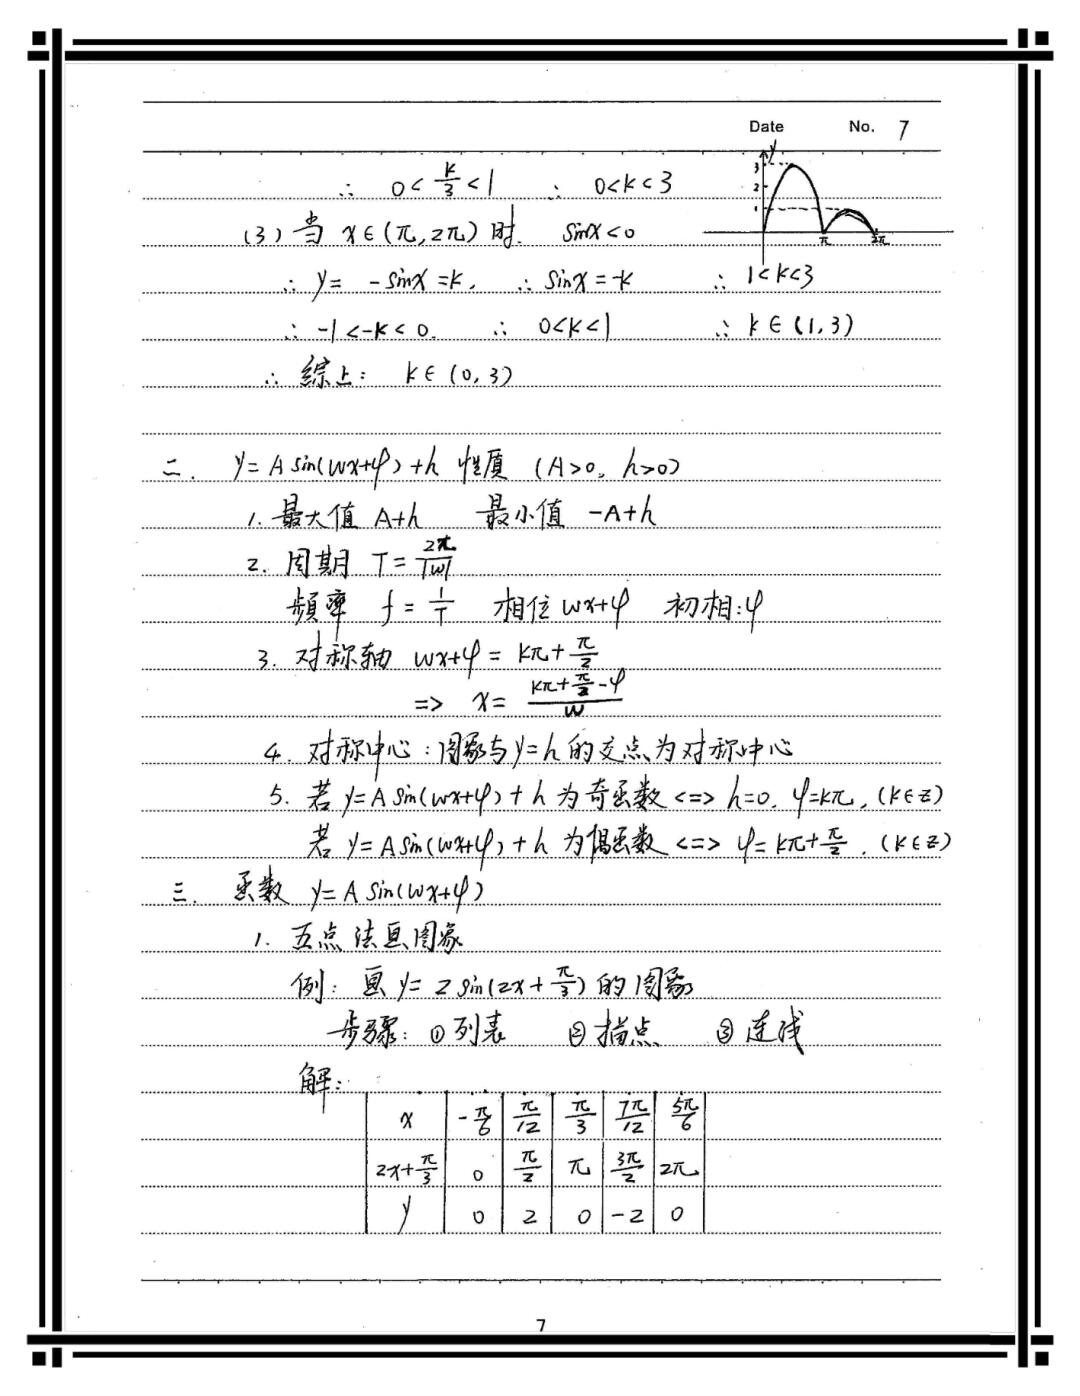 Date No. 7
∴ 0<k/3<1 ∴ 0<k<3
y 3 2 1 π 2π
(3)当 x∈(π,2π)时. sinx<0
∴ y= -sinx=k. ∴ sinx=-k ∴ 1<k<3
∴ -1<-k<0. ∴ 0<k<1 ∴ k∈(1,3)
∴ 综上: k∈(0,3)
二. y=Asin(wx+φ)+h 性质 (A>0, h>0)
1. 最大值 A+h 最小值 -A+h
2. 周期 T=2π/|w|
频率 f=1/T 相位 wx+φ 初相:φ
3. 对称轴 wx+φ=kπ+π/2
=> x=(kπ+π/2-φ)/w
4. 对称中心:图象与y=h的交点为对称中心
5. 若 y=Asin(wx+φ)+h 为奇函数 <=> h=0. φ=kπ, (k∈z)
若 y=Asin(wx+φ)+h 为偶函数 <=> φ=kπ+π/2. (k∈z)
三. 函数 y=Asin(wx+φ)
1. 五点法画图象
例: 画 y=2sin(2x+π/3)的图象
步骤: ①列表 ②描点 ③连线
解:
x -π/6 π/12 π/3 7π/12 5π/6
2x+π/3 0 π/2 π 3π/2 2π
y 0 2 0 -2 0
7